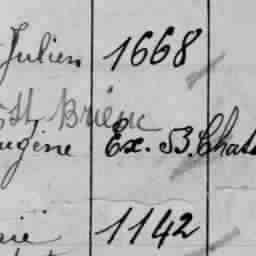 Julien 1668
St Brieuc
Eugène Ex. 53. Chat
1142